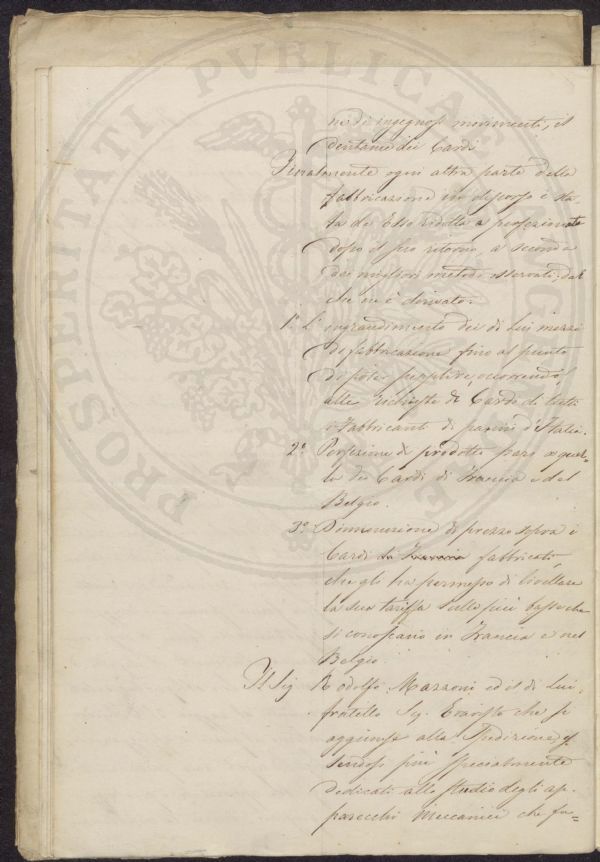 ne di ingegnosi movimenti, il
dentame dei Cardi
Finalmente ogni altra parte della
fabbricazione in discorso è sta-
ta da Esso ridotta a perfezione
dopo il suo ritorno a seconda
dei migliori metodi osservati; dal
che ne è derivato:
1.° L'ingrandimento dei di Lui mezzi
di fabbricazione fino al punto
di poter supplire, occorrendo,
alle richieste di Cardi di tutti
i Fabbricanti di panni d'Italia.
2.° Perfezione di prodotto pari a quel-
la dei Cardi di Francia e del
Belgio.
3.° Diminuzione di prezzo sopra i
Cardi da Francia fabbricati,
che gli ha permesso di livellare
la sua tariffa sulle più basse che
si conoscano in Francia e nel
Belgio.
Il Sig Rodolfo Mazzoni ed il di Lui
fratello Sig. Evaristo che si
aggiunse alla Spedizione es-
sendosi più specialmente
dedicati allo studio degli ap-
parecchi Meccanici che fu=
PROSPERITATI PVBLICAE